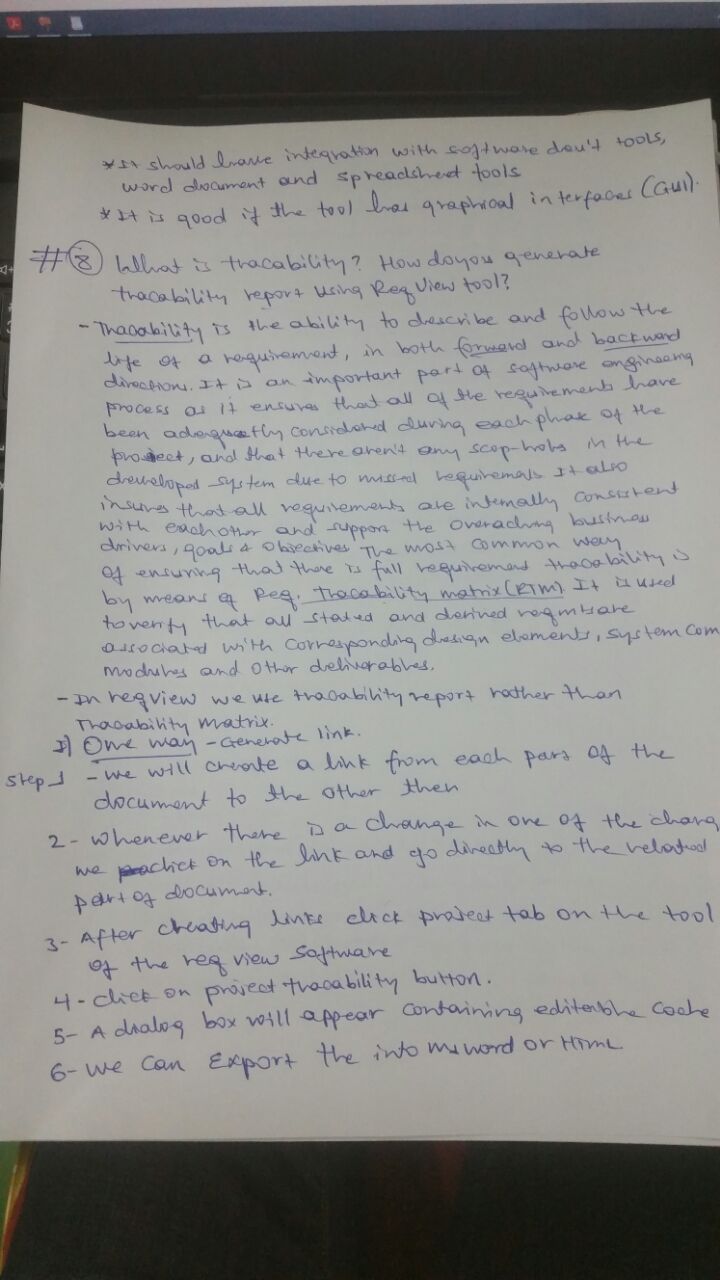 * It should have integration with software dev't tools,
word document and spreadsheet tools
* It is good if the tool has graphical interfaces (GUI).
#8 What is tracability? How do you generate
tracability report using Req View tool?
- Tracability is the ability to describe and follow the
life of a requirement, in both forward and backward
directions. It is an important part of software engineering
process as it ensures that all of the requirements have
been adequatly considered during each phase of the
project, and that there aren't any scop-holes in the
developed system due to missed requirements It also
insures that all requirements are internally consistent
with each other and support the overaching business
drivers, goals & objectives The most common way
of ensuring that there is full requirement tracability is
by means of Req. Tracability matrix (RTM) It is used
to verify that all stated and derived are
associated with corresponding design elements, system com
modules and other deliverables.
- In reqview we use tracability report rather than
Tracability matrix.
I) One way - Generate link.
Step 1 - we will create a link from each part of the
document to the other then
2 - whenever there is a change in one of the chang
we click on the link and go directly to the related
part of document.
3 - After creating links click project tab on the tool
of the req view software
4 - click on project tracability button.
5 - A dialog box will appear containing code
6 - we can Export the into ms word or HTML